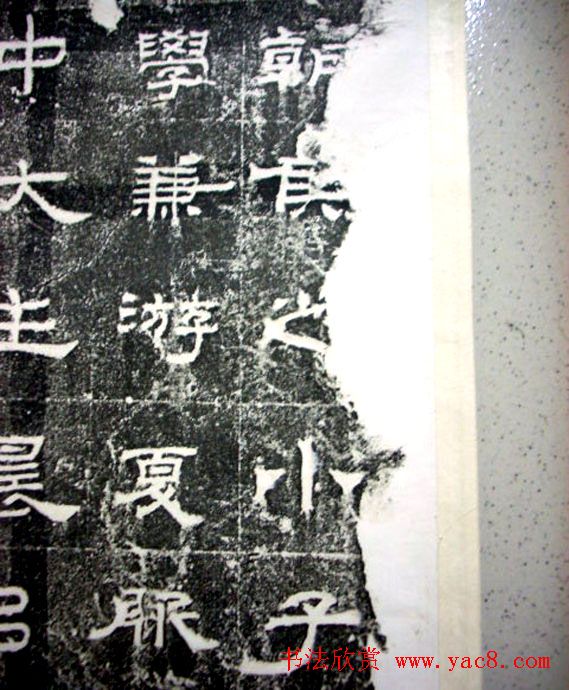 朝侯之小子
學兼游夏服
中大主晨
书法欣赏 www.yac8.com